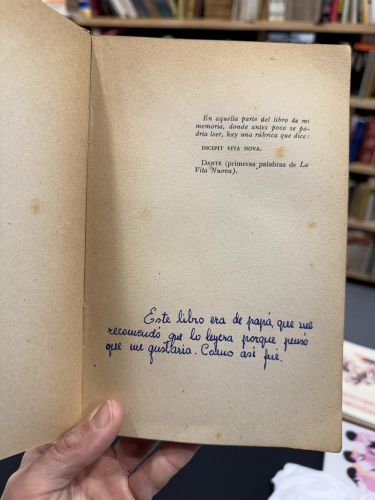 En aquella parte del libro de mi
memoria, donde antes poco se po-
dría leer, hay una rúbrica que dice:
INCIPIT VITA NOVA.
DANTE (primeras palabras de La
Vita Nuova).
Este libro era de papá, que me
recomendó que lo leyera porque pensó
que me gustaría. Como así fué.